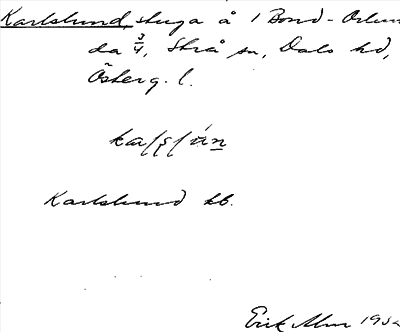 Karlslund, stuga å 1 Bond-Orlun
da 3/4, Strå sn, Dals hd,
Österg. l.
Karlslund kb.
Erik Alm